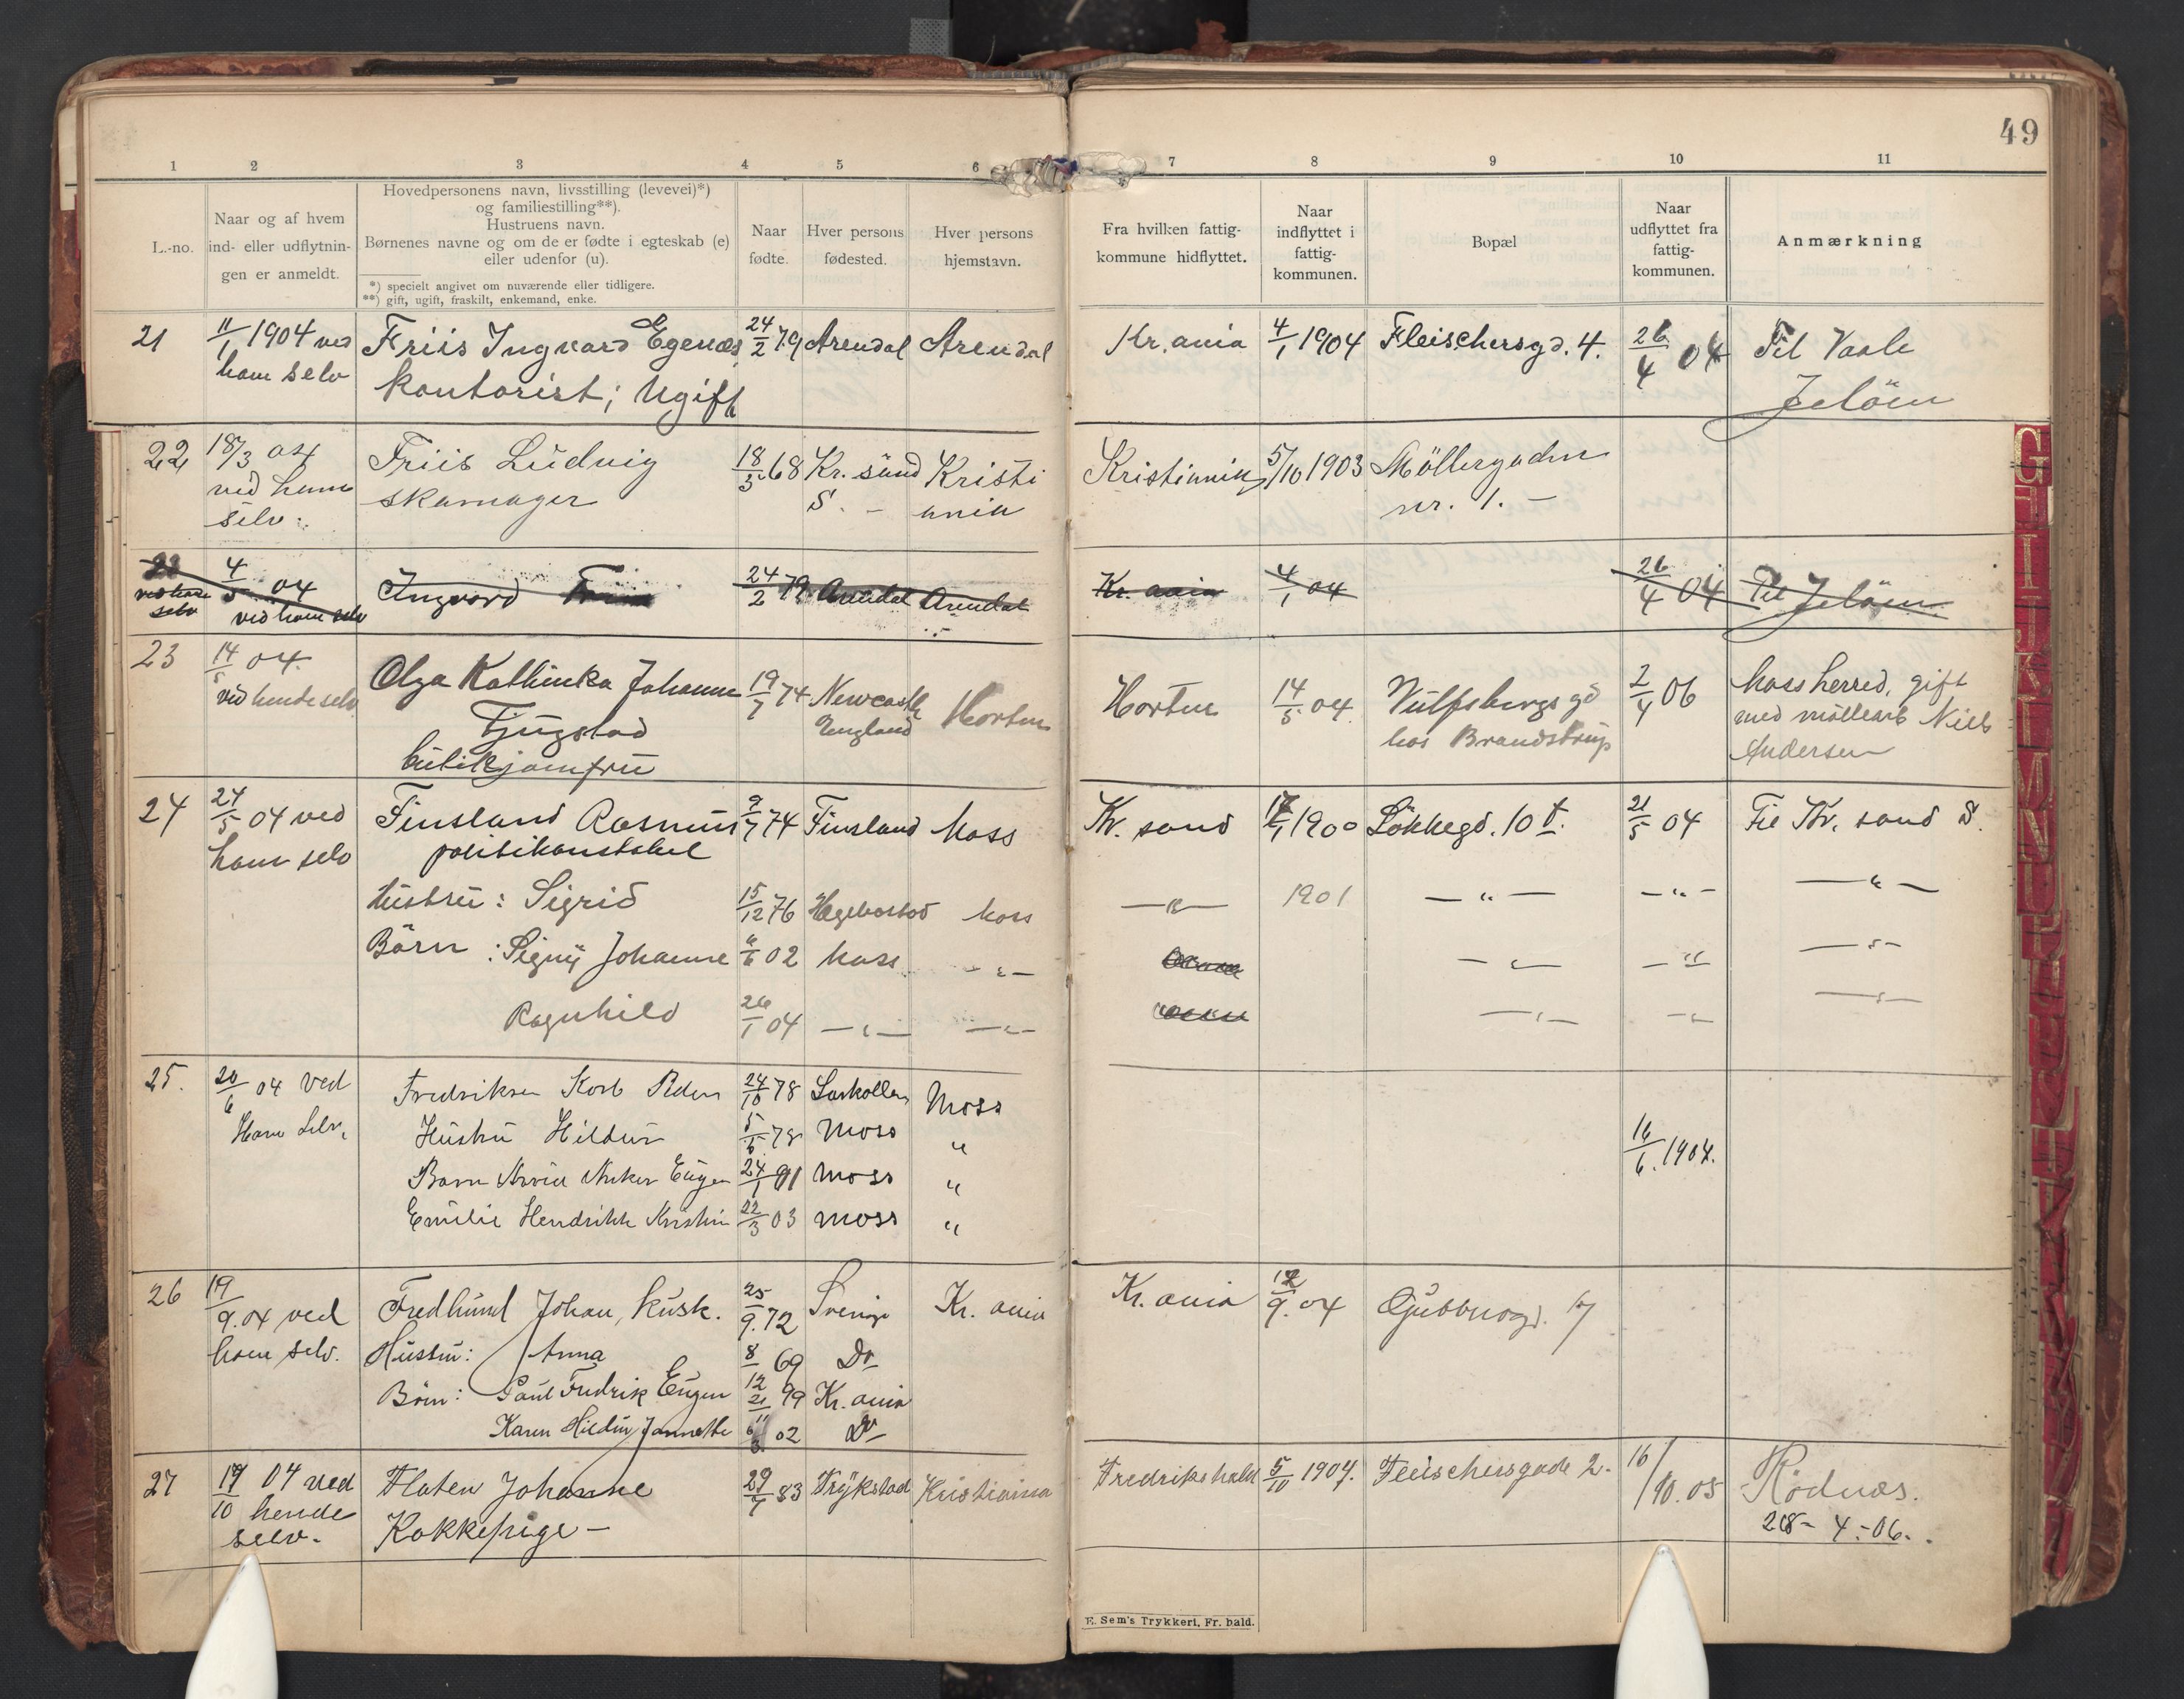 49
1 2 3 4 5 6 7 8 9 10 11
L.-no.
Naar og af hvem
ind- eller udflytnin-
gen er anmeldt.
Hovedpersonens navn, livsstilling (levevei)*)
og familiestilling**).
Hustruens navn.
Børnenes navne og om de er fødte i egteskab (e)
eller udenfor (u).
*) specielt angivet om nuværende eller tidligere.
**) gift, ugift, fraskilt, enkemand, enke.
Naar
fødte.
Hver persons
fødested.
Hver persons
hjemstavn.
Fra hvilken fattig-
kommune hidflyttet.
Naar
indflyttet i
fattig-
kommunen.
Bopæl
Naar
udflyttet fra
fattig-
kommunen.
Anmærkning
21 11/1 1904 ved Friis Ingvard Egenæs 24/2 79 Arendal Arendal Kr.ania 4/1 1904 Fleischersgd. 4. 26/4 04 Til Vaale
ham selv kontorist; Ugift Jeløen
22 18/3 04 Friis Ludvig 18/5 68 Kr. sund Kristi Kristiania 5/10 1903 Møllergaden
ved ham skomager S. - ania nr. 1. -
selv.
4/5 04 Ingvard Friis 24/2 79 Arendal Arendal Kr. ania 4/1 04 26/4 04 Til Jeløen
ved ham selv ved ham selv
23 14/5 04. Olga Kathinka Johanne 19/7 74 Newcastle Horten Horten 14/5 04. Vulfsbergs gd 2/4 06 Moss herred, gift
ved hende selv Tjugstad England hos Brandstrup med møllearb Niels
butikjomfru Andersen
24 24/5 04 ved Finsland Rasmus 9/7 74 Finsland Moss Kr. sand 1900 Løkkegd. 10 b. 21/5 04 Til Kr. sand S.
ham selv politikonstabel
hustru: Sigrid 15/12 76 Hægebostad Moss — " — 1901 — " — - " - — " —
Børn: Signy Johanne 6/6 02 Moss - " - — " — — " — " -
Ragnhild 26/1 04 — " — — " — — " — - " - — " —
25. 20/6 04 ved Fredriksen Karl Peder 24/10 78 Larkollen Moss
Ham selv. Hustru Hildur 5/6 78 Moss " 16/6. 1904.
Barn Anker Eugen 24/1 01 Moss "
Emilie Hendrikke Kristin 22/3 03 Moss "
26 19/9.04 ved Fredlund Johan, kusk. 25/9.72 Sverige Kr. ania Kr. ania 9.04 Gubbeogd. 17
ham selv. Hustru: Anna 8/12 69 Do
Børn: Paul Fredrik Eugen 21/11 99 Kr. ania
Karen Hildur Jannette 02 Do
27 17/10 04 ved Flaten Johanne 29/7 83 Trykstad Kristiania Fredrikshald 5/10 1904. Fleischersgade 2. 16/10.05 Rødnæs.
hende Kokkepige — 28 - 4 - 06.
selv.
G I J K L M N
E. Sem's Trykkeri, Fr. hald.